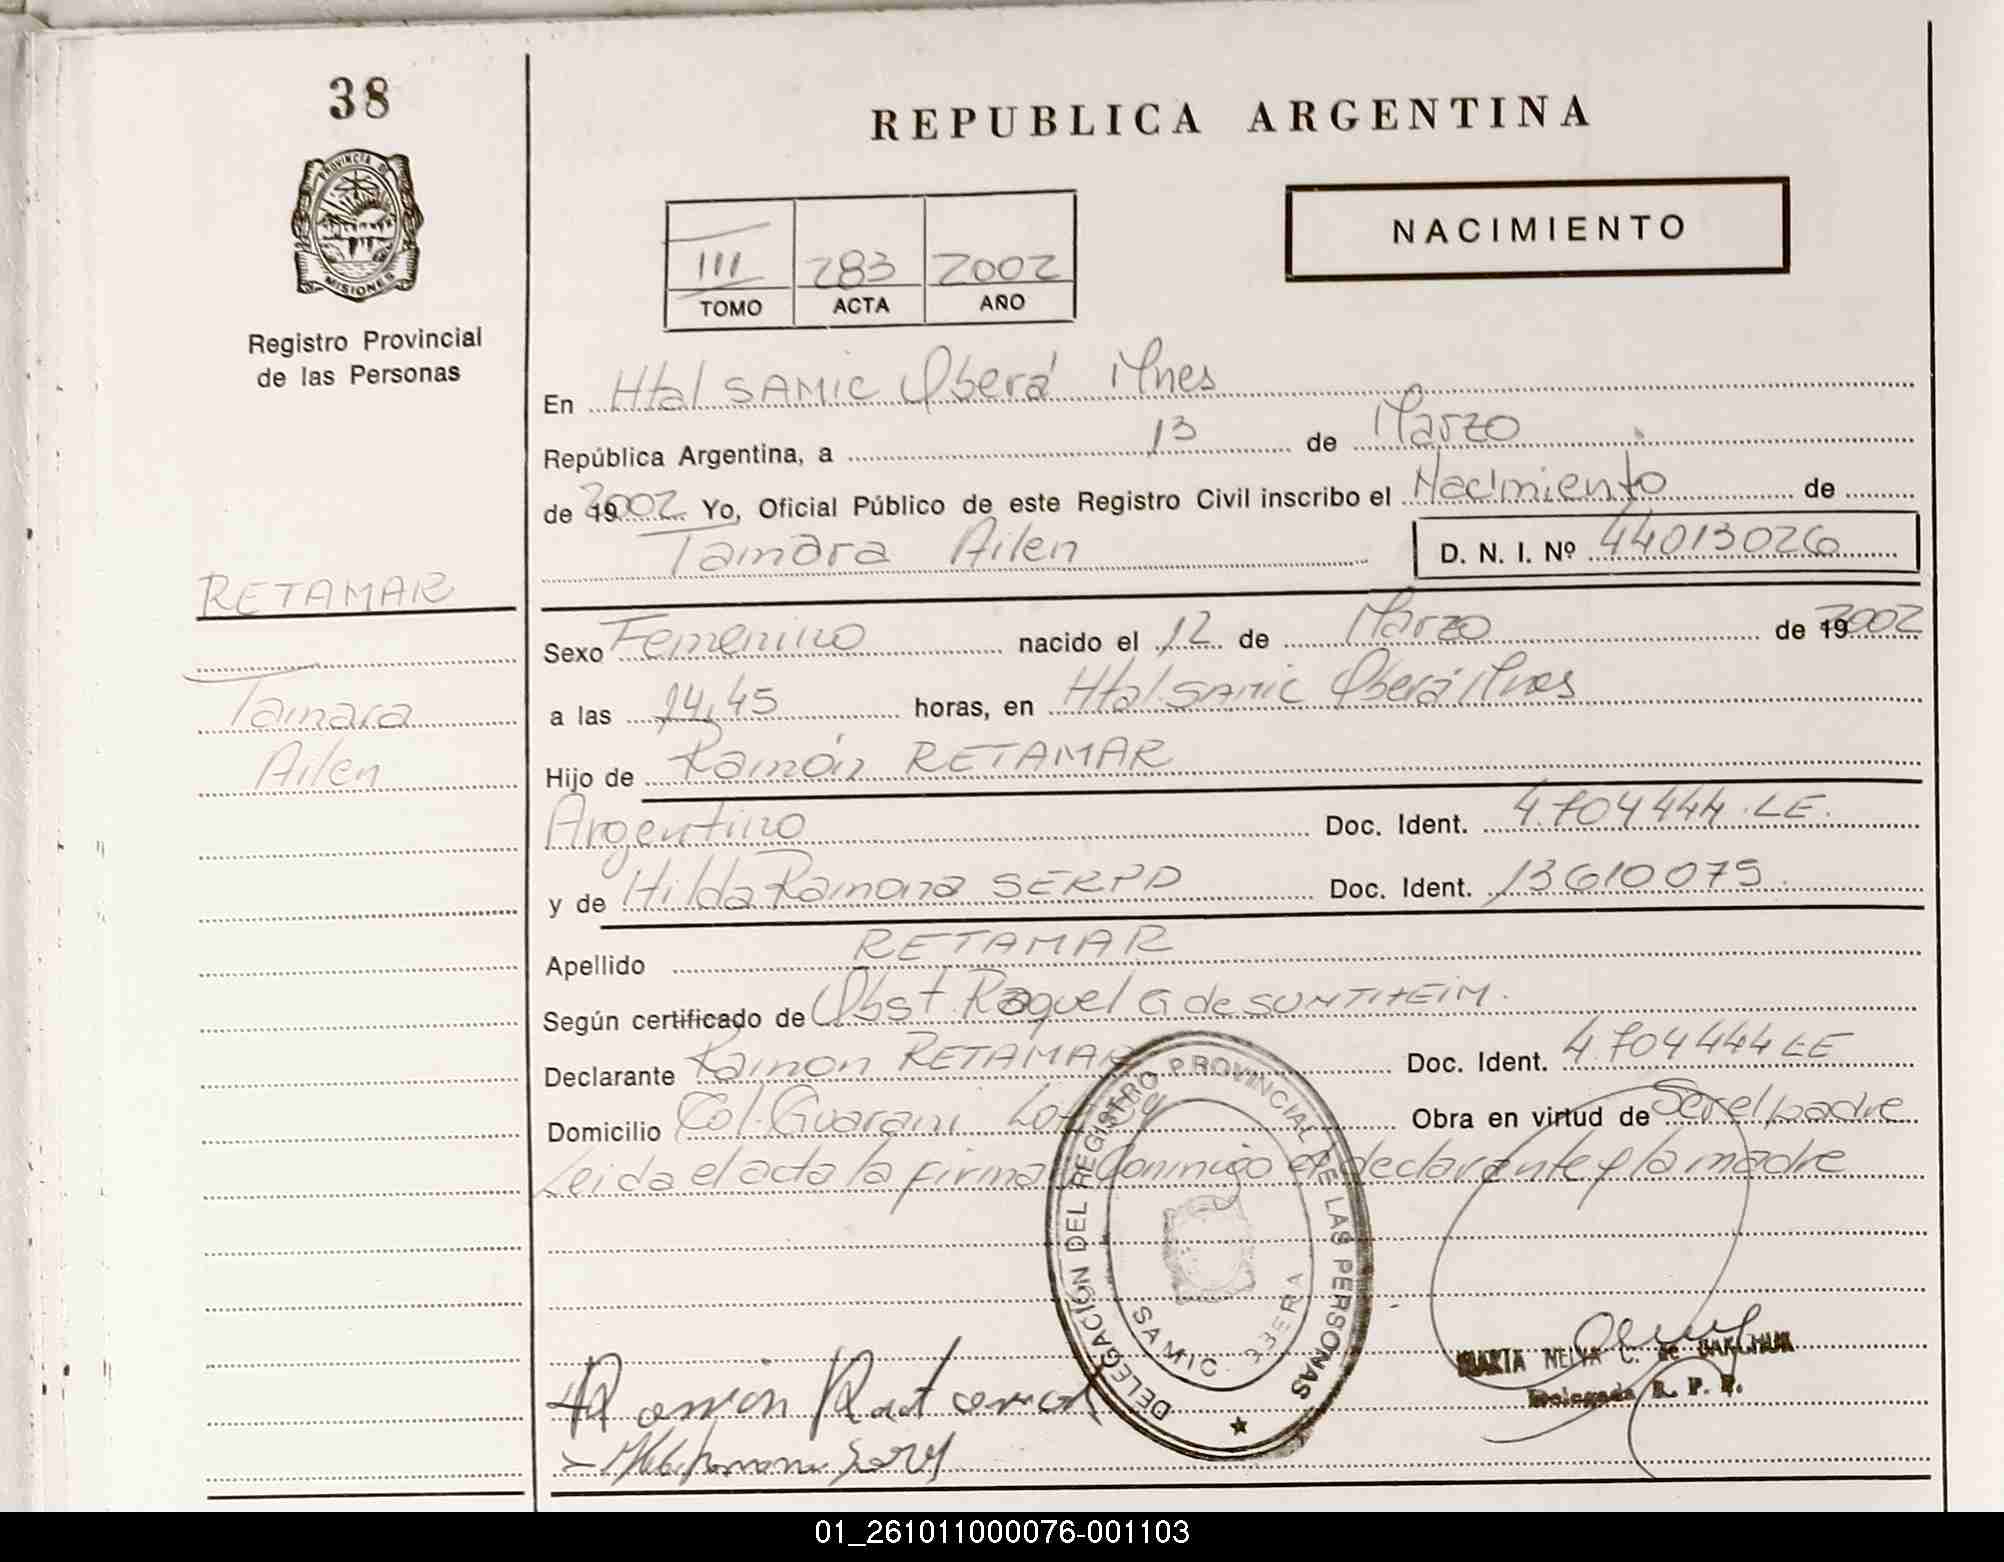 38
REPUBLICA ARGENTINA
PROVINCIA DE
MISIONES
NACIMIENTO
III 283 2002
TOMO ACTA AÑO
Registro Provincial
de las Personas
En Htal SAMIC Oberá Mnes
República Argentina, a 13 de Marzo
de 192002 Yo, Oficial Público de este Registro Civil inscribo el Nacimiento de
Tamara Ailen D. N. I. Nº 44013026
RETAMAR
Tamara
Ailen
Sexo Femenino nacido el 12 de Marzo de 192002
a las 14,45 horas, en Htal SAMIC Oberá Mnes
Hijo de Ramón RETAMAR
Argentino Doc. Ident. 4.704444.LE.
y de Hilda Ramona SERPD Doc. Ident. 13610075.
Apellido RETAMAR
Según certificado de Obst. Raquel G de SUNTHEIM.
Declarante Ramon RETAMAR Doc. Ident. 4.704444 LE
Domicilio Col. Guarani Obra en virtud de Ser el padre
Leida el acta la firma Conmigo el declarante y la madre
DELEGACIÓN DEL REGISTRO PROVINCIAL DE LAS PERSONAS
SAMIC
Ramon
NELVA C. de
Delegada R. P. P.
01_261011000076-001103